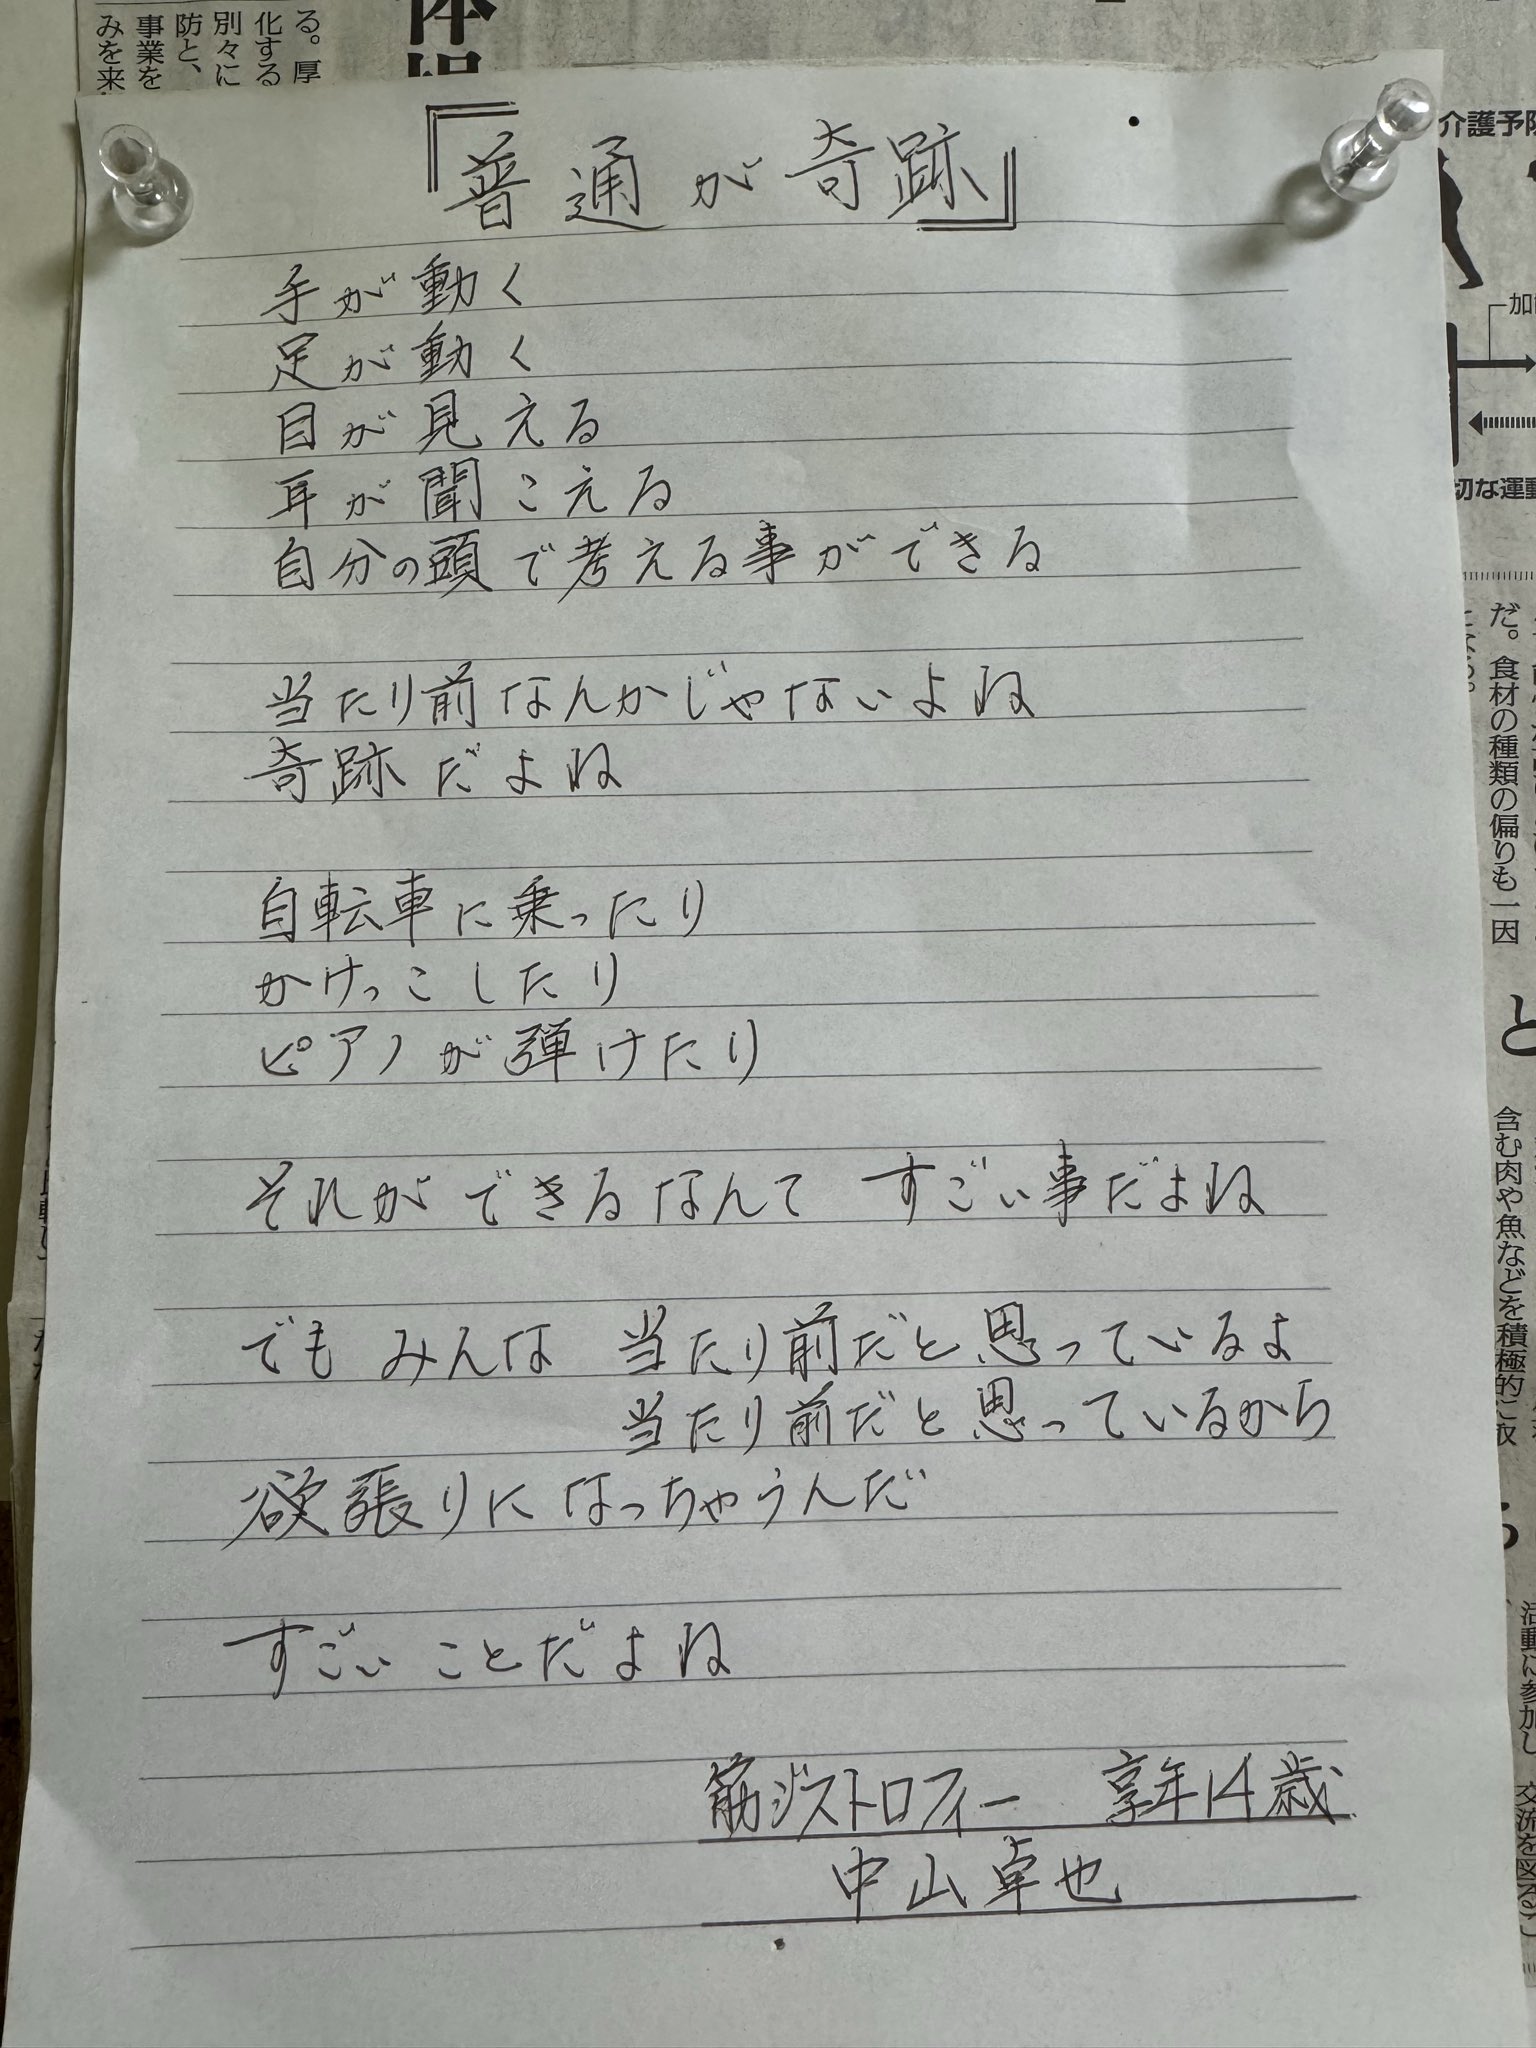 『普通が奇跡』
手が動く
足が動く
目が見える
耳が聞こえる
自分の頭で考える事ができる
当たり前なんかじゃないよね
奇跡だよね
自転車に乗ったり
かけっこしたり
ピアノが弾けたり
それができるなんて すごい事だよね
でも みんな 当たり前だと思っているよ
当たり前だと思っているから
欲張りになっちゃうんだ
すごい ことだよね
筋ジストロフィー 享年14歳
中山卓也
る。厚
化する
別々に
防と、
事業を
みを来
体操
介護予防
加齢
切な運動
だ。食材の種類の偏りも一因
と
含む肉や魚などを積極的に取
る
活動に参加し
交流を図るこ